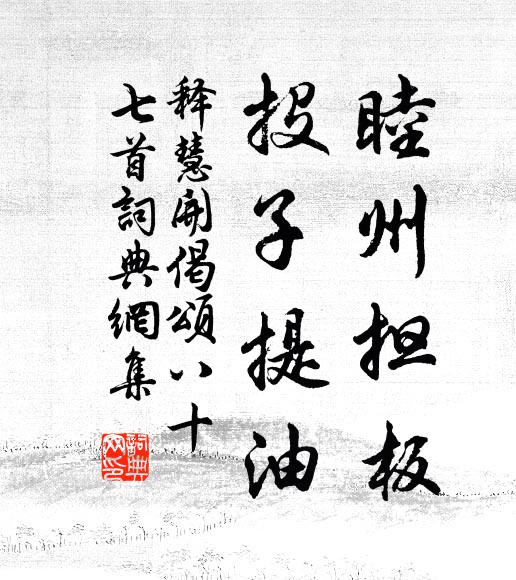 睦州担板
投子提油
释慧開偈頌八十
七首詞典網集
詞典网印